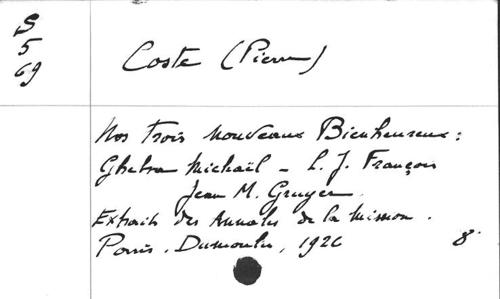 S
5
69
Coste (Pierre)
Nos Trois Nouveaux Bienheureux :
Ghebra Michaël - L. J. François
Jean M. Gruyer.
Extraits des Annales de la Mission.
Paris, Dumoulin, 1926 8°